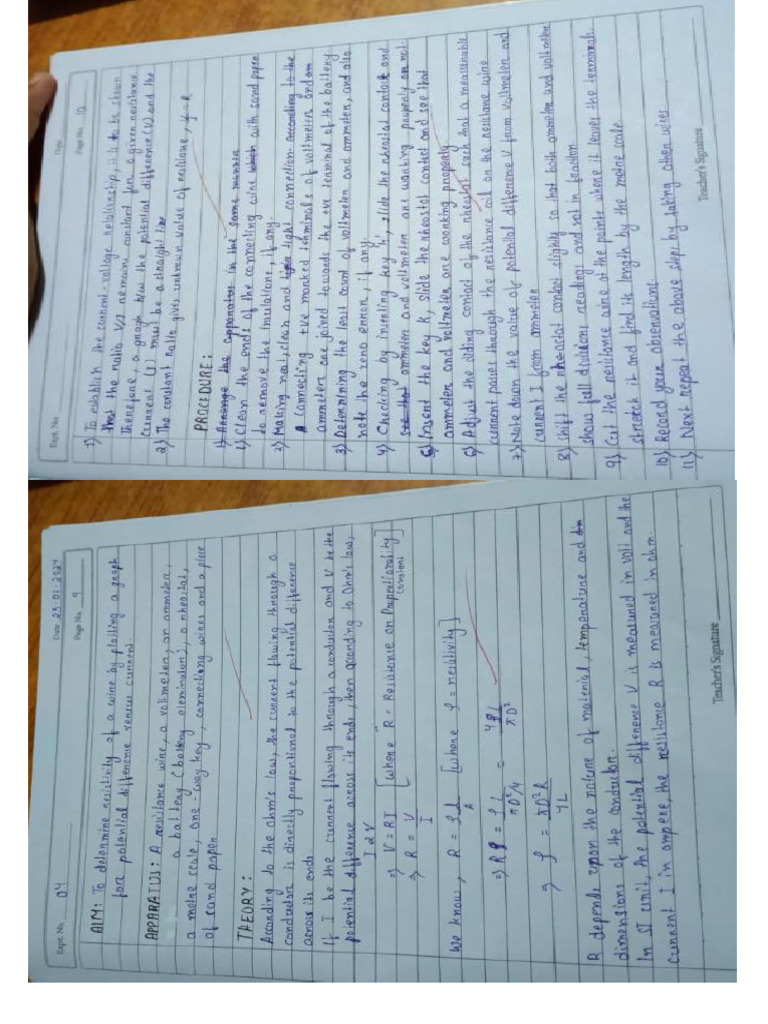 Expt. No. 04
Date 23.01.2024
Page No. 9
AIM: To determine resistivity of a wire by plotting a graph
for potential difference versus current.
APPARATUS: A resistance wire, a voltmeter, an ammeter,
a battery (battery eleminator), a rheostat,
a metre scale, one-way key, connecting wires and a piece
of sand paper
THEORY:
According to the ohm's law, the current flowing through a
conductor is directly proportional to the potential difference
across its ends.
If I be the current flowing through a conductor and V be the
potential difference across its ends, then according to Ohm's law,
I α V
⇒ V = RI [where R = Resistance or Proportionality constant]
⇒ R = V/I
We know, R = ρl/A [where ρ = resistivity]
⇒ R = ρl/πD²/4 = 4ρl/πD²
⇒ ρ = πD²R/4L
R depends upon the nature of material, temperature and
dimensions of the conductor.
In SI unit, the potential difference V is measured in volt and the
current I in ampere, the resistance R is measured in ohm.
Teacher's Signature
Expt. No.
Date
Page No. 10
1) To establish the current-voltage relationship, it is to be shown
that the ratio V/I remains constant for a given resistance.
Therefore, a graph b/w the potential difference (V) and the
current (I) must be a straight line
2) The constant ratio gives unknown value of resistance, V/I = R
PROCEDURE:
1) Arrange the apparatus in the same manner
1) Clean the ends of the connecting wire which with sand paper
to remove the insulations, if any.
2) Making neat, clean and tight connection according to the
connecting +ve marked terminals of voltmeter and
ammeter are joined towards the +ve terminal of the battery
3) Determining the least count of voltmeter and ammeter, and also
note the zero error, if any
4) Checking by inserting key 'K', slide the rheostat contact and
see that ammeter and voltmeter are working properly or not.
5) Insert the key K, slide the rheostat contact and see that
ammeter and voltmeter are working properly
6) Adjust the sliding contact of the rheostat such that a measurable
current passes through the resistance coil or the resistance wire
7) Note down the value of potential difference V from voltmeter and
current I from ammeter
8) Shift the rheostat contact slightly so that both ammetre and voltmeter
show full divisions reading and not in fraction
9) Cut the resistance wire at the points where it leaves the terminals
stretch it and find its length by the metre scale
10) Record your observations.
11) Next repeat the above step, by taking other wires
Teacher's Signature